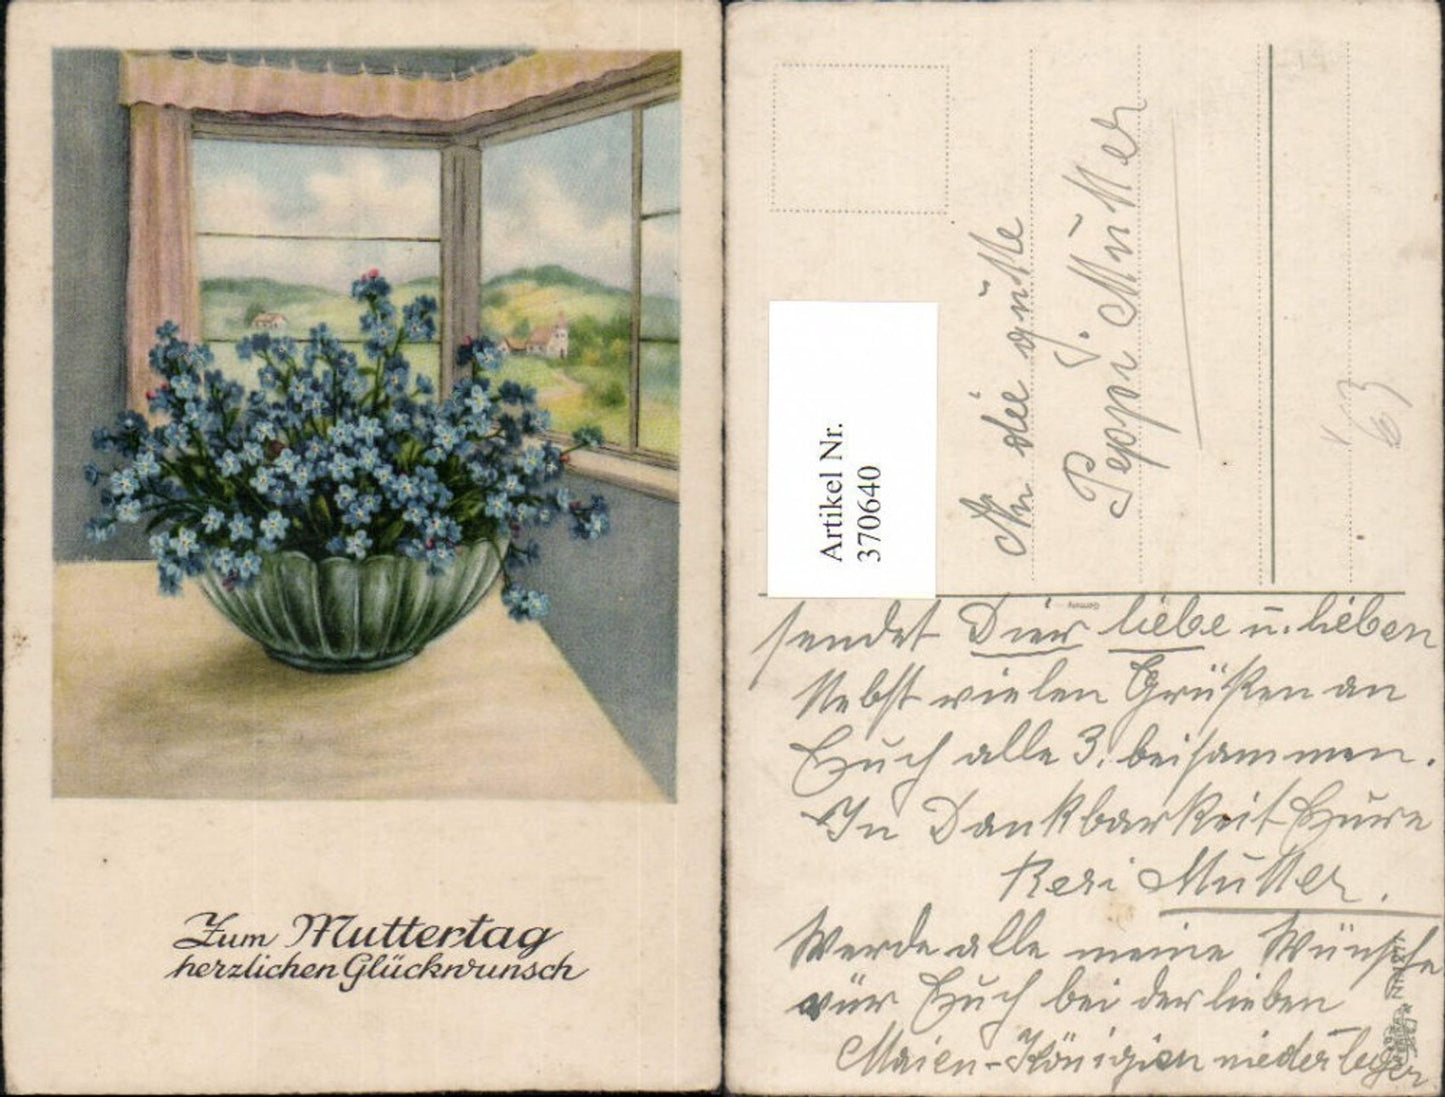 Zum Muttertag
herzlichen Glückwunsch
Artikel Nr.
370640
An die gute
Peppi Mutter
63
Germany
sendet Dier liebe u. lieben
Nebst vielen Grüßen an
Euch alle 3. beisammen.
In Dankbarkeit Eure
Resi Mutter.
Werde alle meine Wünsche
vür Euch bei der lieben
Maien-Königien niederlegen